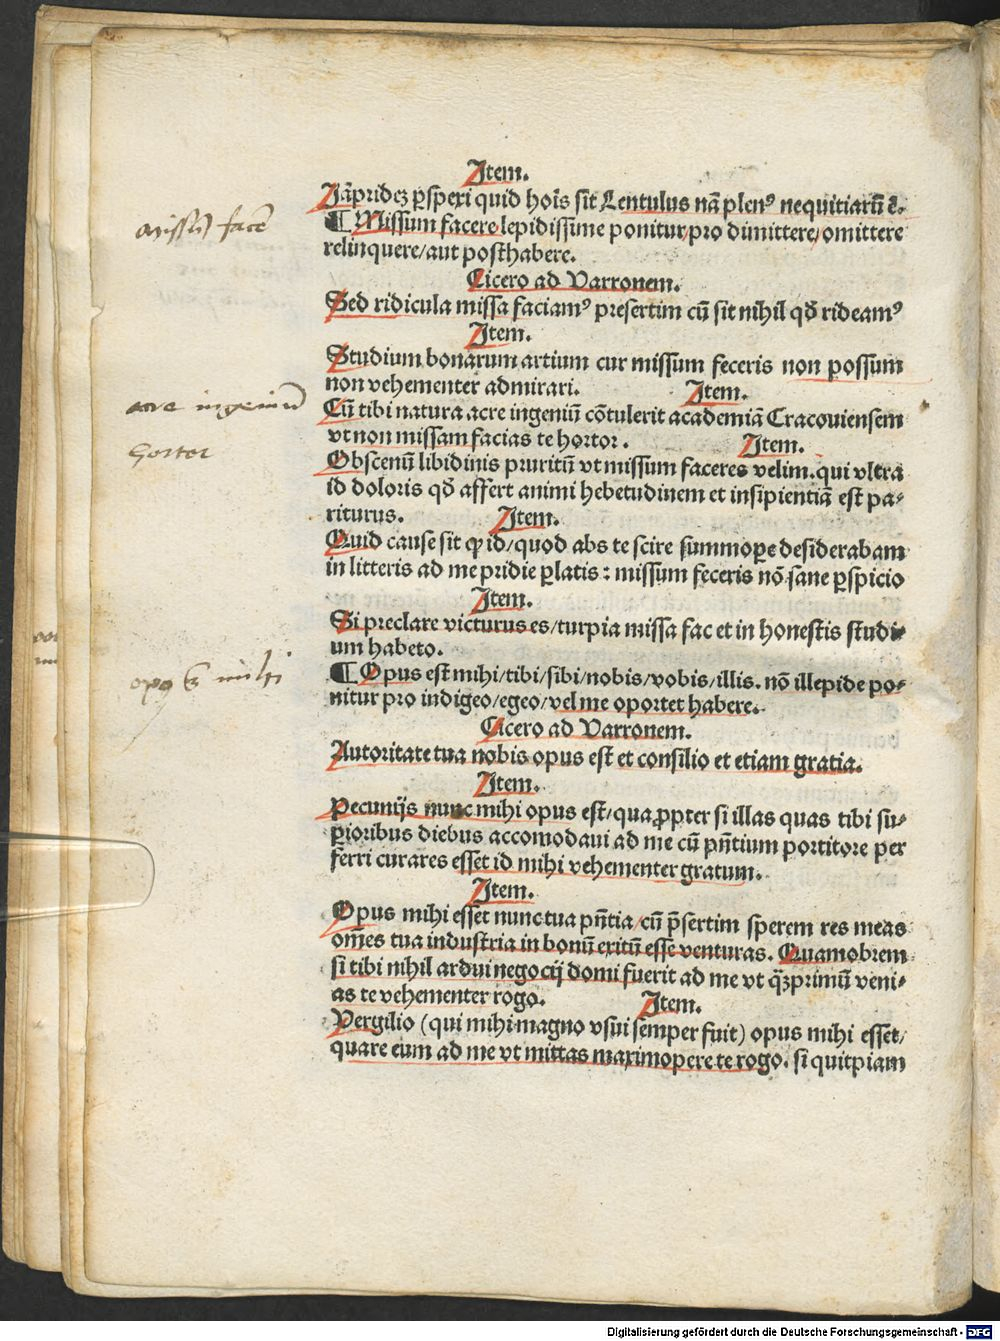 Item.
Jā̄prideꝫ ꝑspexi quid hoīs sit Lentulus nā plenꝰ nequitiarū ē.
¶ Missum facere lepidissime ponitur pro dimittere/ omittere
relinquere/ aut posthabere.
Cicero ad Varronem.
Sed ridicula missa faciamꝰ presertim cū sit nihil qđ rideamꝰ
Item.
Studium bonarum artium cur missum feceris non possum
non vehementer admirari. Item.
Cū tibi natura acre ingeniū cōtulerit academiā Cracouiensem
vt non missam facias te hortor. Item.
Obscenū libidinis pruritū vt missum faceres velim. qui vltra
id doloris qđ affert animi hebetudinem et insipientiā est pa⸗
riturus. Item.
Quid cause sit ꝙ id/ quod abs te scire summoꝑe desiderabam
in litteris ad me pridie ꝑlatis: missum feceris nō sane ꝑspicio
Item.
Si preclare victurus es/ turpia missa fac et in honestis studi⸗
um habeto.
¶ Opus est mihi/ tibi/ sibi/ nobis/ vobis/ illis. nō illepide po⸗
nitur pro indigeo/ egeo/ vel me oportet habere.
Cicero ad Varronem.
Autoritate tua nobis opus est et consilio et etiam gratia.
Item.
Pecunijs nunc mihi opus est/ quaꝓpter si illas quas tibi su⸗
ꝑioribus diebus accomodaui ad me cū pn̄tium portitore per
ferri curares esset id mihi vehementer gratum.
Item.
Opus mihi esset nunc tua pn̄tia/ cū p̄sertim sperem res meas
om̄es tua industria in bonū exitū esse venturas. Quamobrem
si tibi nihil ardui negocij domi fuerit ad me vt qꝫprimū veni⸗
as te vehementer rogo. Item.
Vergilio (qui mihi magno vsui semper fuit) opus mihi esset/
quare eum ad me vt mittas maximopere te rogo. si quitpiam
missū facē
acre ingeniū
hortor
opꝰ ē mihi
Digitalisierung gefördert durch die Deutsche Forschungsgemeinschaft - DFG